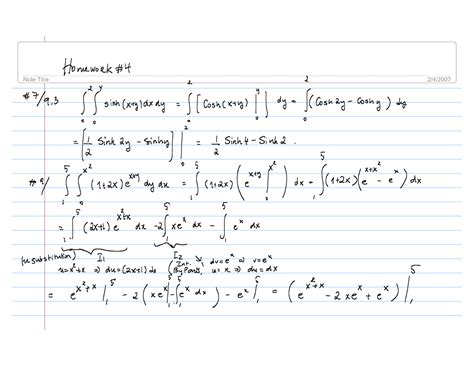 Homework #4
Note Title 2/4/2007
#7/9.3 ∫₀² ∫₀^y sinh(x+y) dx dy = ∫₀² [ cosh(x+y) |₀^y ] dy = ∫₀² (cosh 2y − cosh y) dy
= [ 1/2 sinh 2y − sinh y ] |₀² = 1/2 sinh 4 − sinh 2.
#9/ ∫₁⁵ ∫₀^{x²} (1+2x) e^{x+y} dy dx = ∫₁⁵ (1+2x) ( e^{x+y} |₀^{x²} ) dx = ∫₁⁵ (1+2x) ( e^{x+x²} − e^x ) dx
= ∫₁⁵ (2x+1) e^{x²+x} dx − 2 ∫₁⁵ x e^x dx − ∫₁⁵ e^x dx
(u substitution) I₁ I₂
u = x²+x ⇒ du = (2x+1) dx ( Int. By Parts, dv = e^x ⇒ v = e^x u = x ⇒ du = dx
= e^{x²+x} |₁⁵ − 2 ( x e^x |₁⁵ − ∫₁⁵ e^x dx ) − e^x |₁⁵ = ( e^{x²+x} − 2x e^x + e^x ) |₁⁵